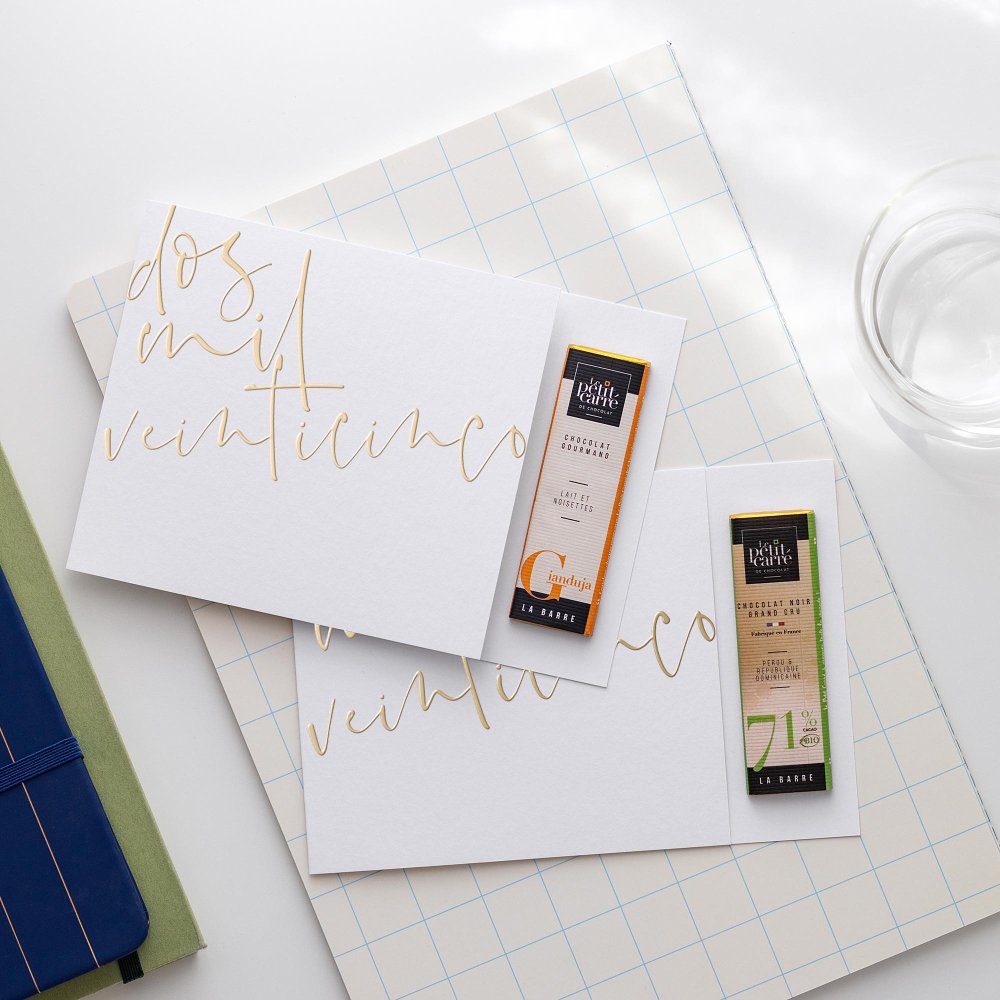 dos
mil
veinticinco
Le
petit
carré
DE CHOCOLAT
CHOCOLAT
GOURMAND
LAIT ET
NOISETTES
Gianduja
LA BARRE
veinticinco
Le
petit
carré
DE CHOCOLAT
CHOCOLAT NOIR
GRAND CRU
Fabriqué en France
PÉROU &
RÉPUBLIQUE
DOMINICAINE
71%
CACAO
BIO
LA BARRE